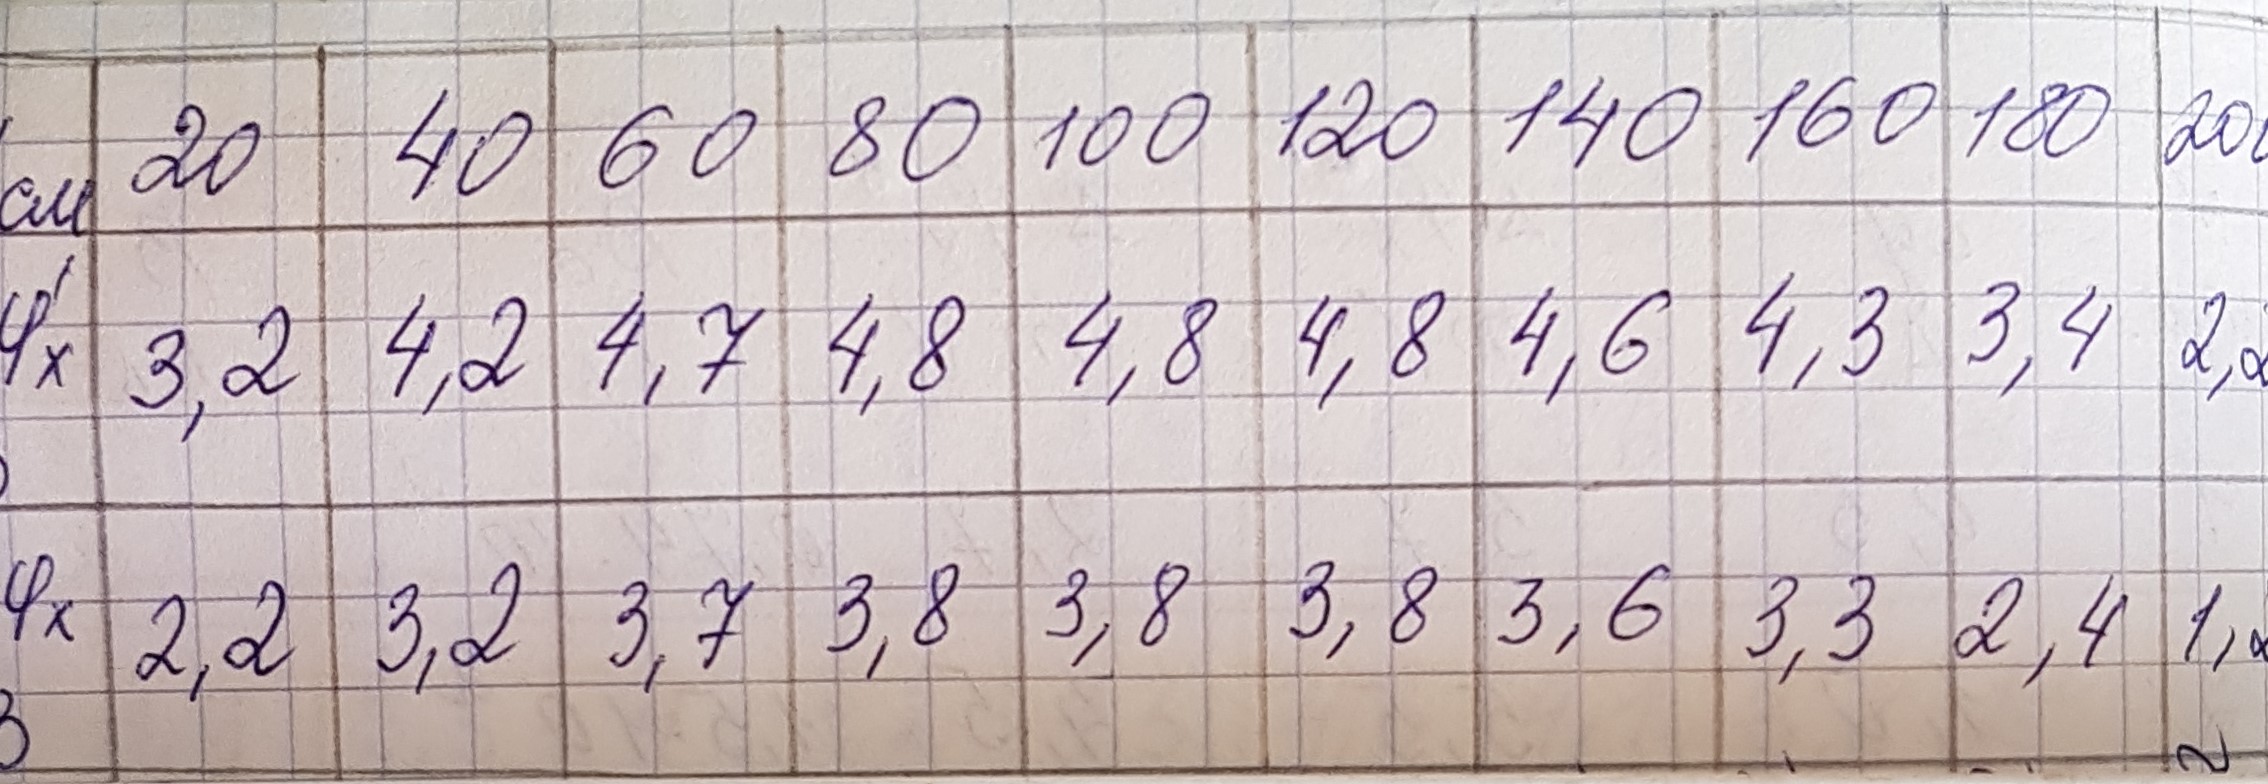 см 20 40 60 80 100 120 140 160 180 200
φ'x 3,2 4,2 4,7 4,8 4,8 4,8 4,6 4,3 3,4 2,2
φx 2,2 3,2 3,7 3,8 3,8 3,8 3,6 3,3 2,4 1,2
В